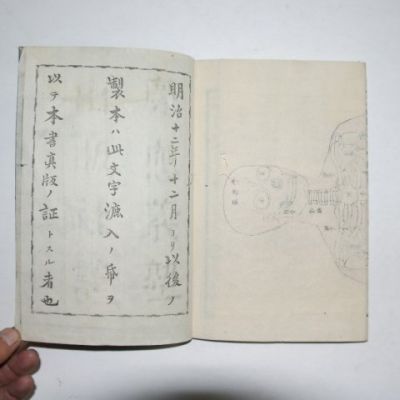 明治十二年十二月ヨリ以後ノ
製本ハ此文字漉入ノ紙ヲ
以テ本書真版ノ証トスル者也